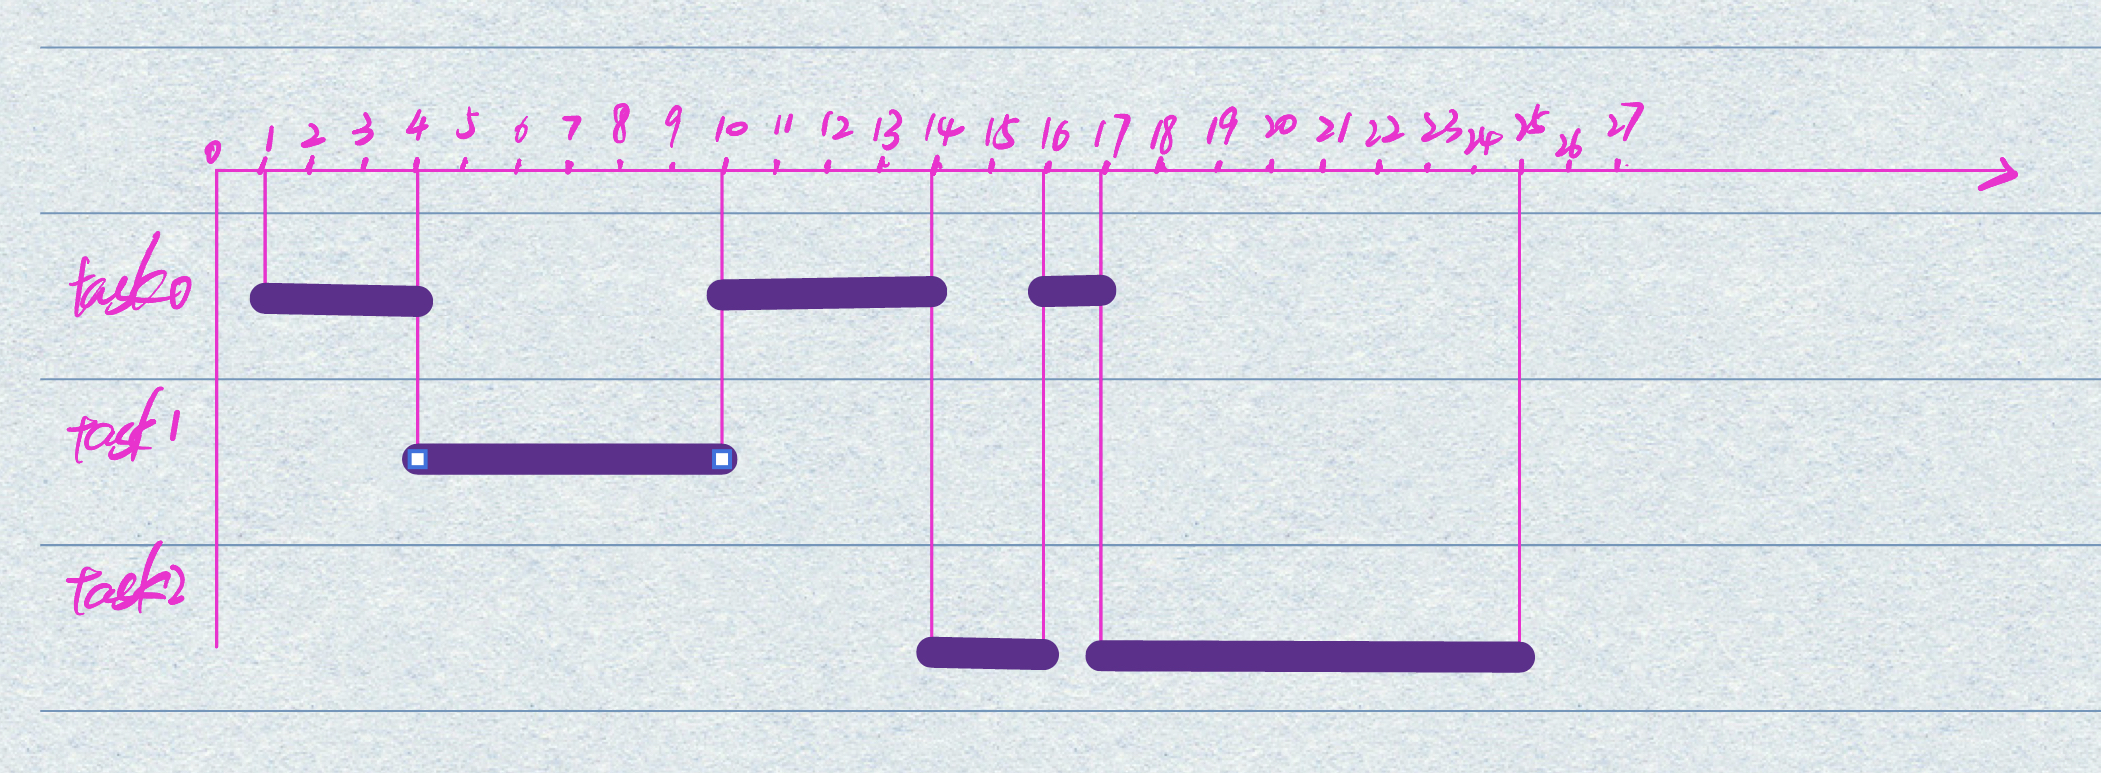 0 1 2 3 4 5 6 7 8 9 10 11 12 13 14 15 16 17 18 19 20 21 22 23 24 25 26 27
task0
task1
task2